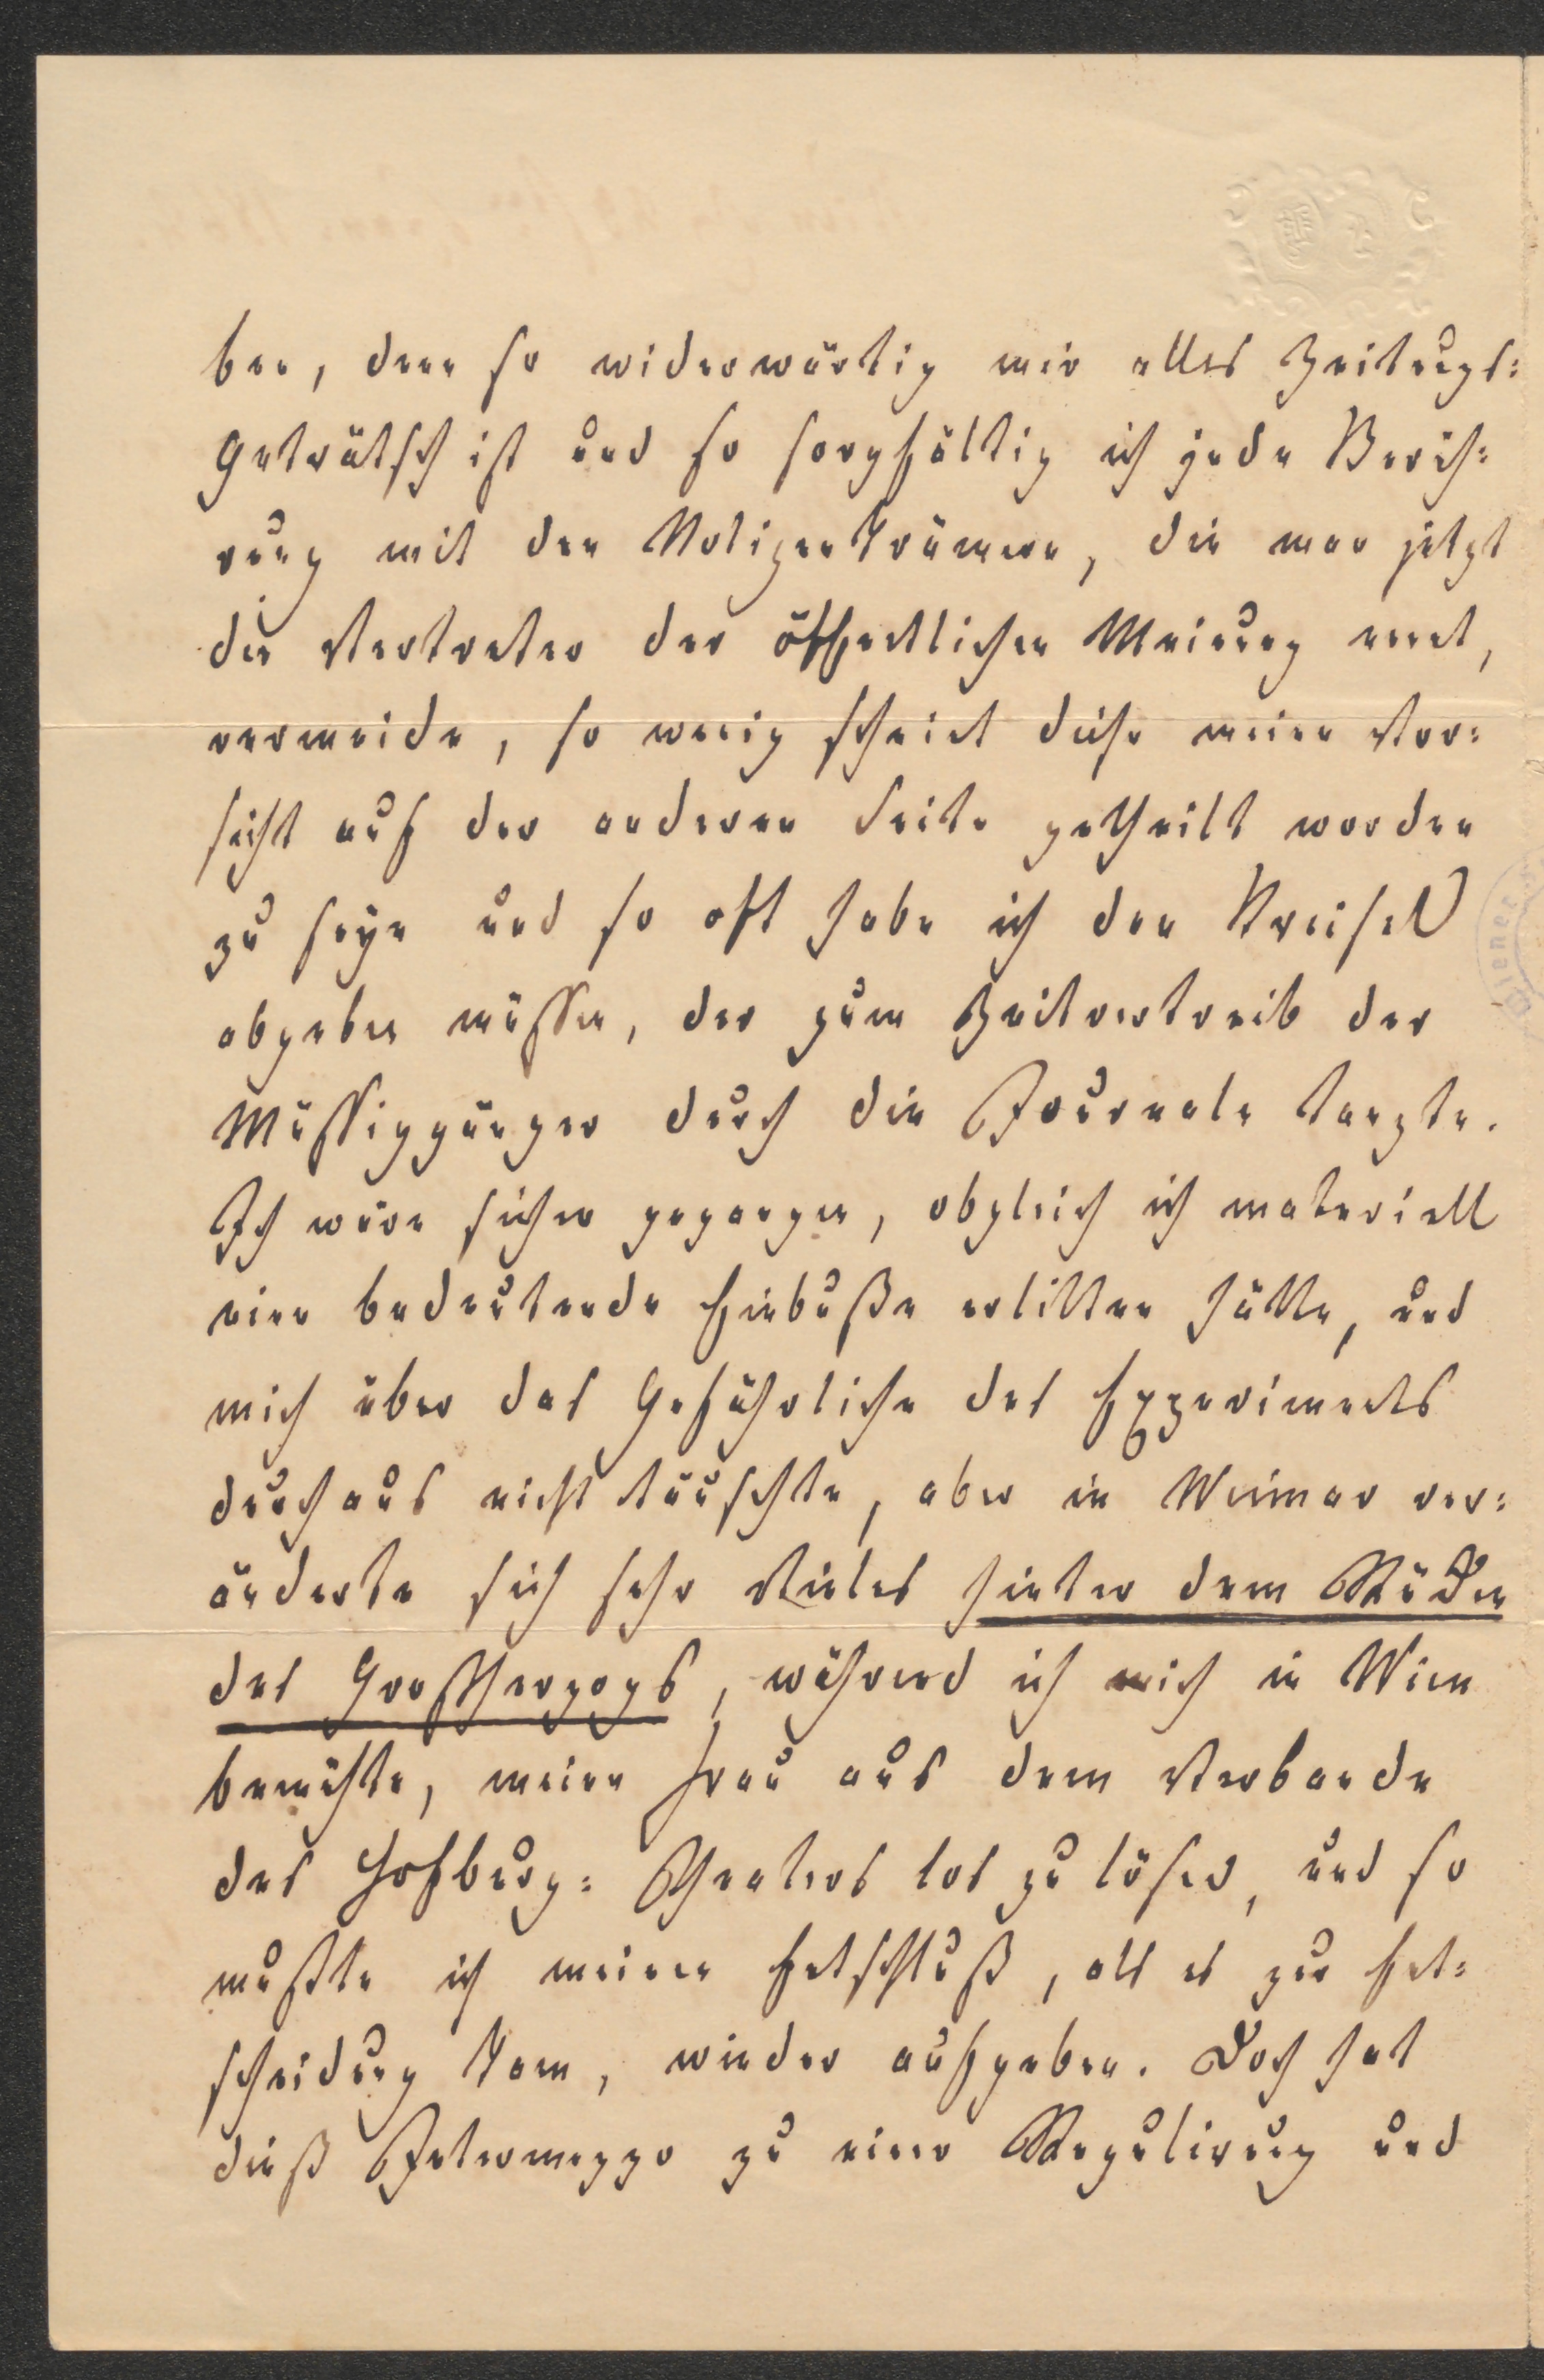 ben, denn so widerwärtig mir alles Zeitungs:
Geträtsch ist und so sorgfältig ich jede Berüh:
rung mit den Notizenkrämern, die man jetzt
die Vertreter der öffentlichen Meinung nennt,
vermeide, so wenig scheint diese meine Vor:
sicht auf der anderen Seite getheilt worden
zu seyn und so oft habe ich den Kreisel
abgeben müssen, der zum Zeitvertreib der
Müssiggänger durch die Journale tanzte.
Ich wäre sicher gegangen, obgleich ich materiell
eine bedeutende Einbuße erlitten hätte, und
mich über das Gefährliche des Experiments
durchaus nicht täuschte, aber in Weimar ver:
änderte sich sehr Vieles hinter dem Rücken
des Großherzogs, während ich mich in Wien
bemühte, meine Frau aus dem Verbande
des Hofburg: Theaters los zu lösen, und so
mußte ich meinen Entschluß, als es zur Ent:
scheidung kam, wieder aufgeben. Doch hat
dieß Intermezzo zu einer Regulirung und
Wiener